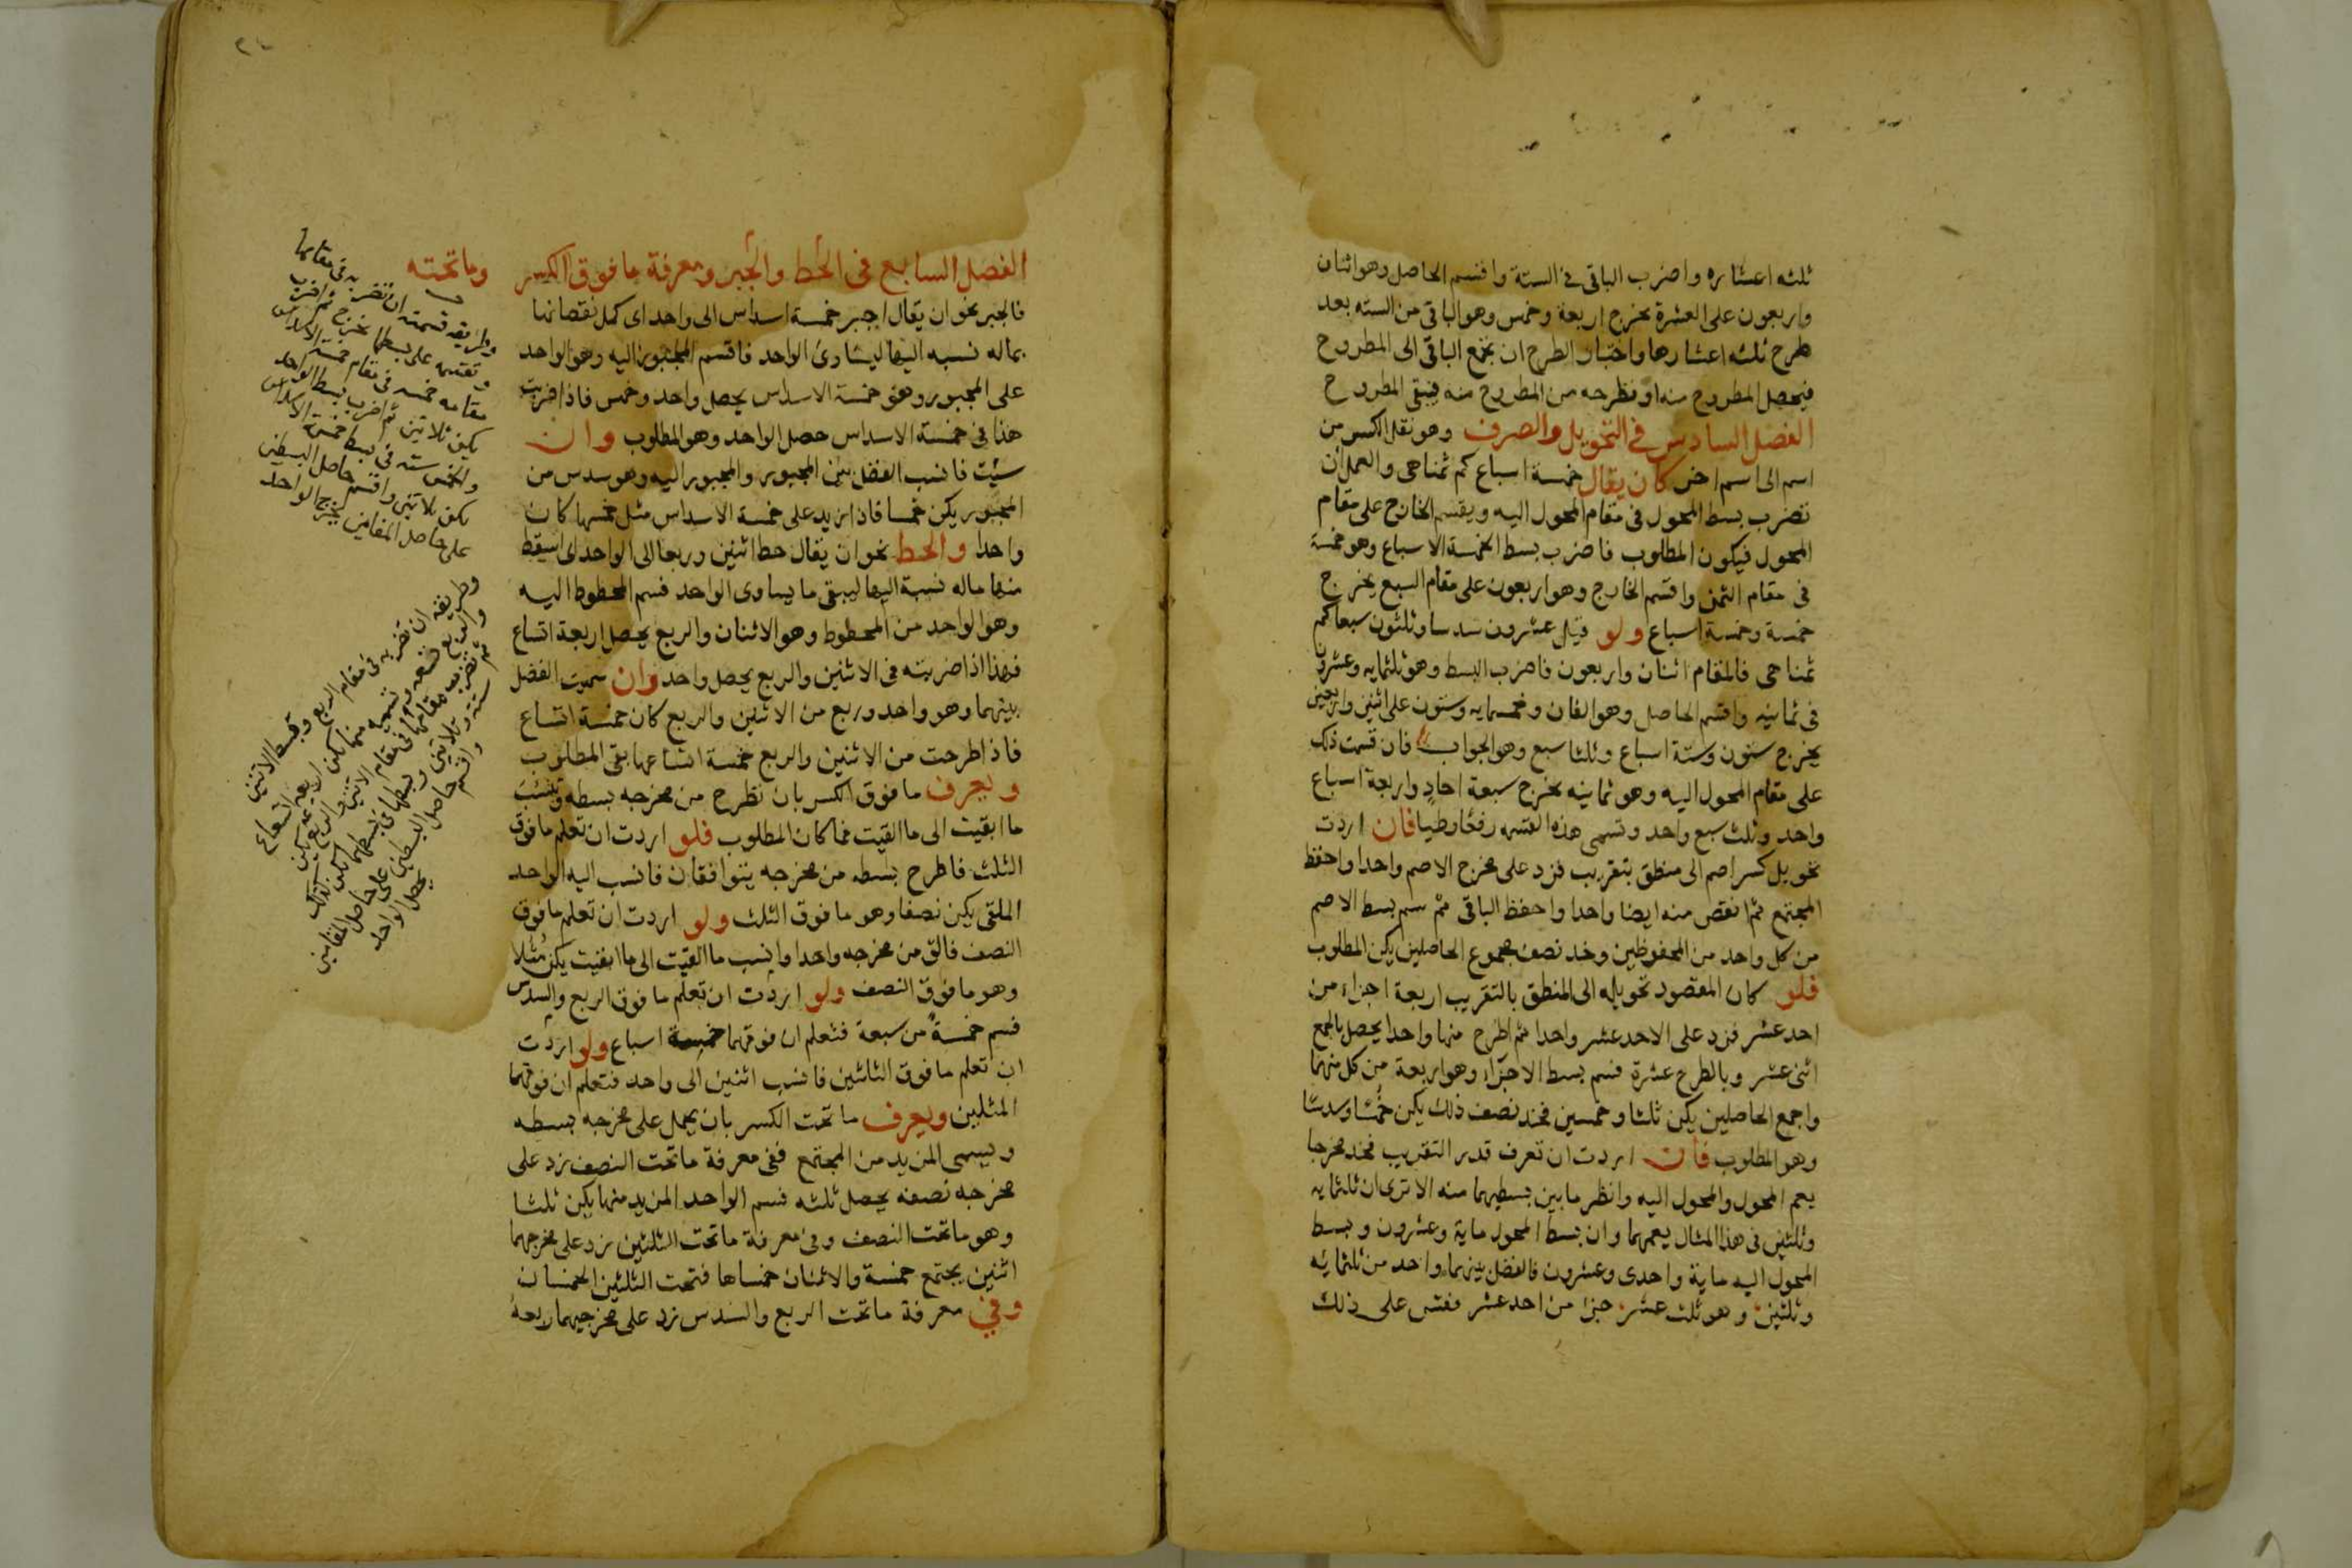 ثلثه اعشاره واضرب الباقى فى الستة واقسم الحاصل وهو اثنان
واربعون على العشرة يخرج اربعة وخمس وهو الباقى من السته بعد
طرح ثلثه اعشارها واختبار الطرح ان تجمع الباقى الى المطروح
فيحصل المطروح منه او تطرحه من المطروح منه فيبقى المطروح
الفصل السادس فى التحويل والصرف وهو نقل الكسر من
اسم الى اسم اخر كان يقال خمسة اسباع كم ثمنا هى والعمل ان
تضرب بسط المحول فى مقام المحول اليه ويقسم الخارج على مقام
المحول فيكون المطلوب فاضرب بسط الخمسة الاسباع وهو خمسة
فى مقام الثمن واقسم الخارج وهو اربعون على مقام السبع يخرج
خمسة وخمسة اسباع ولو قيل عشرون سدسا وثلثون سبعا كم
ثمنا هى فالمقام اثنان واربعون فاضرب البسط وهو ثلثمايه وعشرون
فى ثمانيه واقسم الحاصل وهو الفان وخمسمايه وستون على اثنين واربعين
يخرج ستون وستة اسباع وثلثا سبع وهو الجواب فان قسمت ذلك
على مقام المحول اليه وهو ثمانيه يخرج سبعة احاد واربعة اسباع
واحد وثلث سبع واحد وتسمى هذه القسمه رفعا وطيا فان اردت
تحويل كسر اصم الى منطق بتقريب فزد على مخرج الاصم واحدا واحفظ
المجتمع ثم انقص منه ايضا واحدا واحفظ الباقى ثم سم بسط الاصم
من كل واحد من المحفوظين وخذ نصف مجموع الحاصلين يكن المطلوب
فلو كان المقصود تحويله الى المنطق بالتقريب اربعة اجزاء من
احد عشر فزد على الاحد عشر واحدا ثم اطرح منها واحدا يحصل بالجمع
اثنى عشر وبالطرح عشرة فسم بسط الاجزاء وهو اربعة من كل منهما
واجمع الحاصلين يكن ثلثا وخمسين فخذ نصف ذلك يكن خمسا وسدسا
وهو المطلوب فان اردت ان تعرف قدر التقريب فخذ مخرجا
يعم المحول والمحول اليه وانظر ما بين بسطيهما منه الا ترى ان ثلثمايه
وثلثين فى هذا المثال يعمهما وان بسط المحول ماية وعشرون وبسط
المحول اليه ماية واحدى وعشرون فالفضل بينهما واحد من ثلثمائه
وثلثين وهو ثلث عشر جزا من احد عشر فقس على ذلك
الفصل السابع فى الحط والجبر ومعرفة ما فوق الكسر وما تحته
فالجبر نحو ان يقال اجبر خمسة اسداس الى واحد اى كمل نقصانها
بماله نسبه اليها ليساوى الواحد فاقسم المجبور اليه وهو الواحد
على المجبور وهو خمسة الاسداس يحصل واحد وخمس فاذا ضربت
هذا فى خمسة الاسداس حصل الواحد وهو المطلوب وان
شيت فانسب الفضل بين المجبور والمجبور اليه وهو سدس من
المجبور يكن خمسا فاذا زيد على خمسة الاسداس مثل خمسها كان
واحدا والحط نحو ان يقال حط اثنين وربعا الى الواحد اى اسقط
منها ماله نسبة اليها ليبقى ما يساوى الواحد فسم المحطوط اليه
وهو الواحد من المحطوط وهو الاثنان والربع يحصل اربعة اتساع
فهذا اذا ضربته فى الاثنين والربع يحصل واحد وان سميت الفضل
بينهما وهو واحد وربع من الاثنين والربع كان خمسة اتساع
فاذا طرحت من الاثنين والربع خمسة اتساعها بقى المطلوب
ويعرف ما فوق الكسر بان تطرح من مخرجه بسطه وتنسب
ما ابقيت الى ما القيت فما كان المطلوب فلو اردت ان تعلم ما فوق
الثلث فاطرح بسطه من مخرجه يبق اثنان فانسب اليه الواحد
الملقى يكن نصفا وهو ما فوق الثلث ولو اردت ان تعلم ما فوق
النصف فالق من مخرجه واحدا وانسب ما القيت الى ما ابقيت يكن مثلا
وهو ما فوق النصف ولو اردت ان تعلم ما فوق الربع والسدس
فسم خمسة من سبعة فتعلم ان فوقهما خمسة اسباع ولو اردت
ان تعلم ما فوق الثلثين فانسب اثنين الى واحد فتعلم ان فوقهما
المثلين ويعرف ما تحت الكسر بان يحمل على مخرجه بسطه
ويسمى المزيد من المجتمع ففى معرفة ما تحت النصف زد على
مخرجه نصفه يحصل ثلثه فسم الواحد المزيد منها يكن ثلثا
وهو ما تحت النصف وفى معرفة ما تحت الثلثين زد على مخرجهما
اثنين يجتمع خمسة والاثنان خمساها فتحت الثلثين الخمسان
وفى معرفة ما تحت الربع والسدس زد على مخرجيهما ربعه
وطريقه قسمته ان تضربه فى مقامها
وتقسمه على بسطها يخرج ثم اضرب
مقامه خمسه فى مقام خمسة الاسداس
يكن ثلاثين ثم اضرب بسط الواحد
والخمس سته فى بسط خمسة الاسداس
يكن ثلاثين واقسم حاصل البسطين
على حاصل المقامين يخرج الواحد
وطريقه ان تضربه فى مقام الربع وبسط الاثنين
والربع تسعه تسميه منها يكن اربعه اتساع
ثم تضرب مقامها فى مقام الاثنين والربع يكن
ستة وثلاثين وبسطها فى بسطهما يكن كذلك
واقسم حاصل البسطين على حاصل المقامين
يحصل الواحد